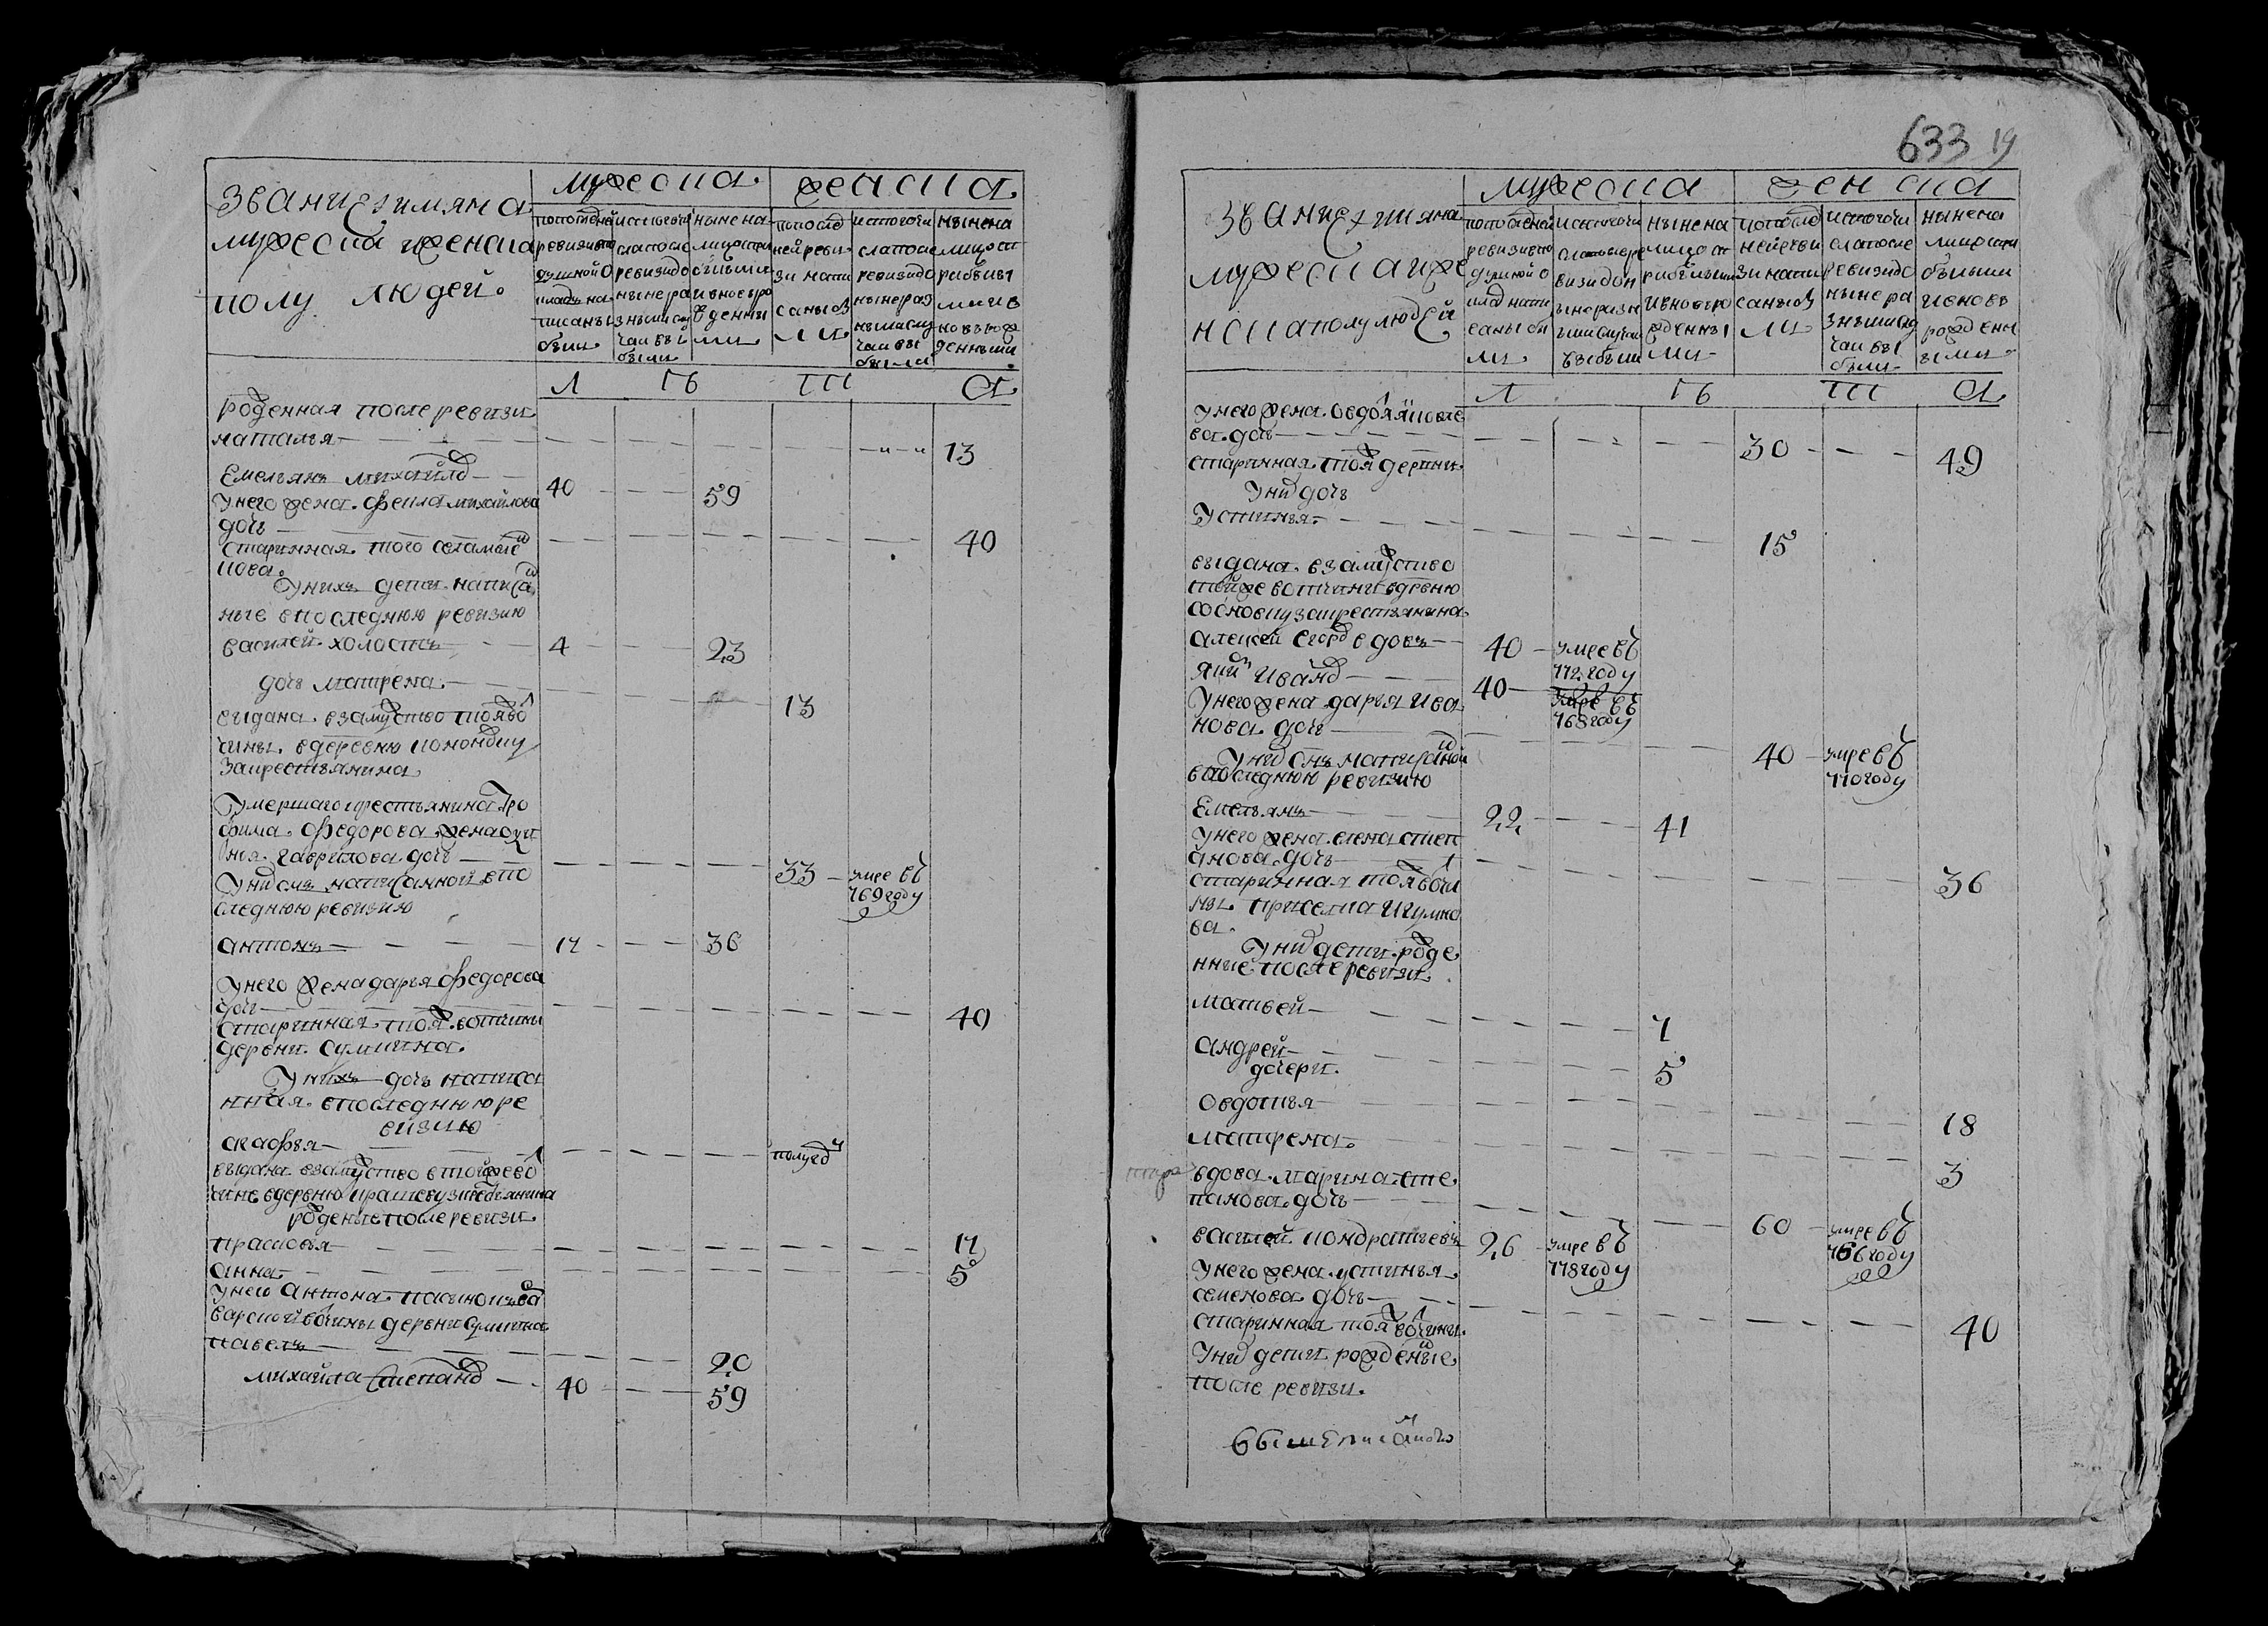 звание и имяна
мужеска и женска
полу людей.
мужеска
женска
по последней
ревизии в по
душной о
кладъ на
писаны
были
ис того чи
сла после
ревизи до
ныне ра
зными слу
чаи вы
были
ныне на
лицо спри
бывши
и вновь ро
жденны
ми
по послед
ней реви
зи напи
саны бы
ли
ис того чи
сла после
ревизи до
ныне раз
ными слу
чаи вы
были
ныне на
лицо сп
рибывы
ми и в
новь рож
денными
Л ѣ т а
рожденная после ревизи
наталья 13
Емельянъ михайловъ 40 59
у него жена фекла михайлова
дочь 40
старинная того села
кова
у нихъ дети написа
ные в последнюю ревизию
василей холостъ 4 23
дочь матрена 13
выдана в замужство тояж вот
чины в деревню
за крестьянина
Умершаго крестьянина Тро
фима федорова жена
гаврилова дочь 33 умре въ
769 году
у них сынъ написанной в по
следнюю ревизию
антонъ 17 36
у него жена дарья федорова
дочь 40
старинная тояж вотчины
деревни
у нихъ дочь написа
нная в последнюю ре
визию
акафья полугод
выдана в замужство в тойже вот
чине в деревню за крестьянина
рожденые после ревизи
прасковья 17
анна 5
у него антона пасынокъ
вотчины деревни
павелъ 20
михайла степановъ 40 59
633 19
звание и имяна
мужеска и же
нска полу людей
мужеска
женска
по последней
ревизи в по
душной о
клад напи
саны бы
ли
ис того чи
сла после ре
визи до н
ыне разн
ыми случаи
выбыли
ныне на
лицо сп
рибылыми
и вновь ро
жденны
ми
по послед
ней реви
зи напи
саны бы
ли
ис того чи
сла после
ревизи до
ныне ра
зными слу
чаи вы
были
ныне на
лицо спри
бывыми
и новь
рожденн
ыми
Л ѣ т а
у него жена овдотья яковле
ва дочь 30 49
старинная тояж деревни
у них дочь
Устинья 15
выдана в замужство
тойже вотчины в деревню
сосновку за крестьянина
алексей егоров вдовъ 40 умре въ
772 году
якимъ иванов 40 умре въ
768 году
у него жена дарья ива
нова дочь 40 умре въ
770 году
у них сынъ написаной
в последнюю ревизию
Емельянъ 22 41
у него жена елена степ
анова дочь 36
старинная тояж вотчи
ны приселка игумно
ва
у них дети рожде
нные после ревизи
матвей 7
андрей 5
дочери
овдотья 18
матрена 3
вдова марина сте
панова дочь 60 умре въ
766 году
василей кондратьевъ 26 умре въ
778 году
у него жена устинья
семенова дочь 40
старинная тояж вотчины
у них дети рожденые
после ревизи
вышеписанного